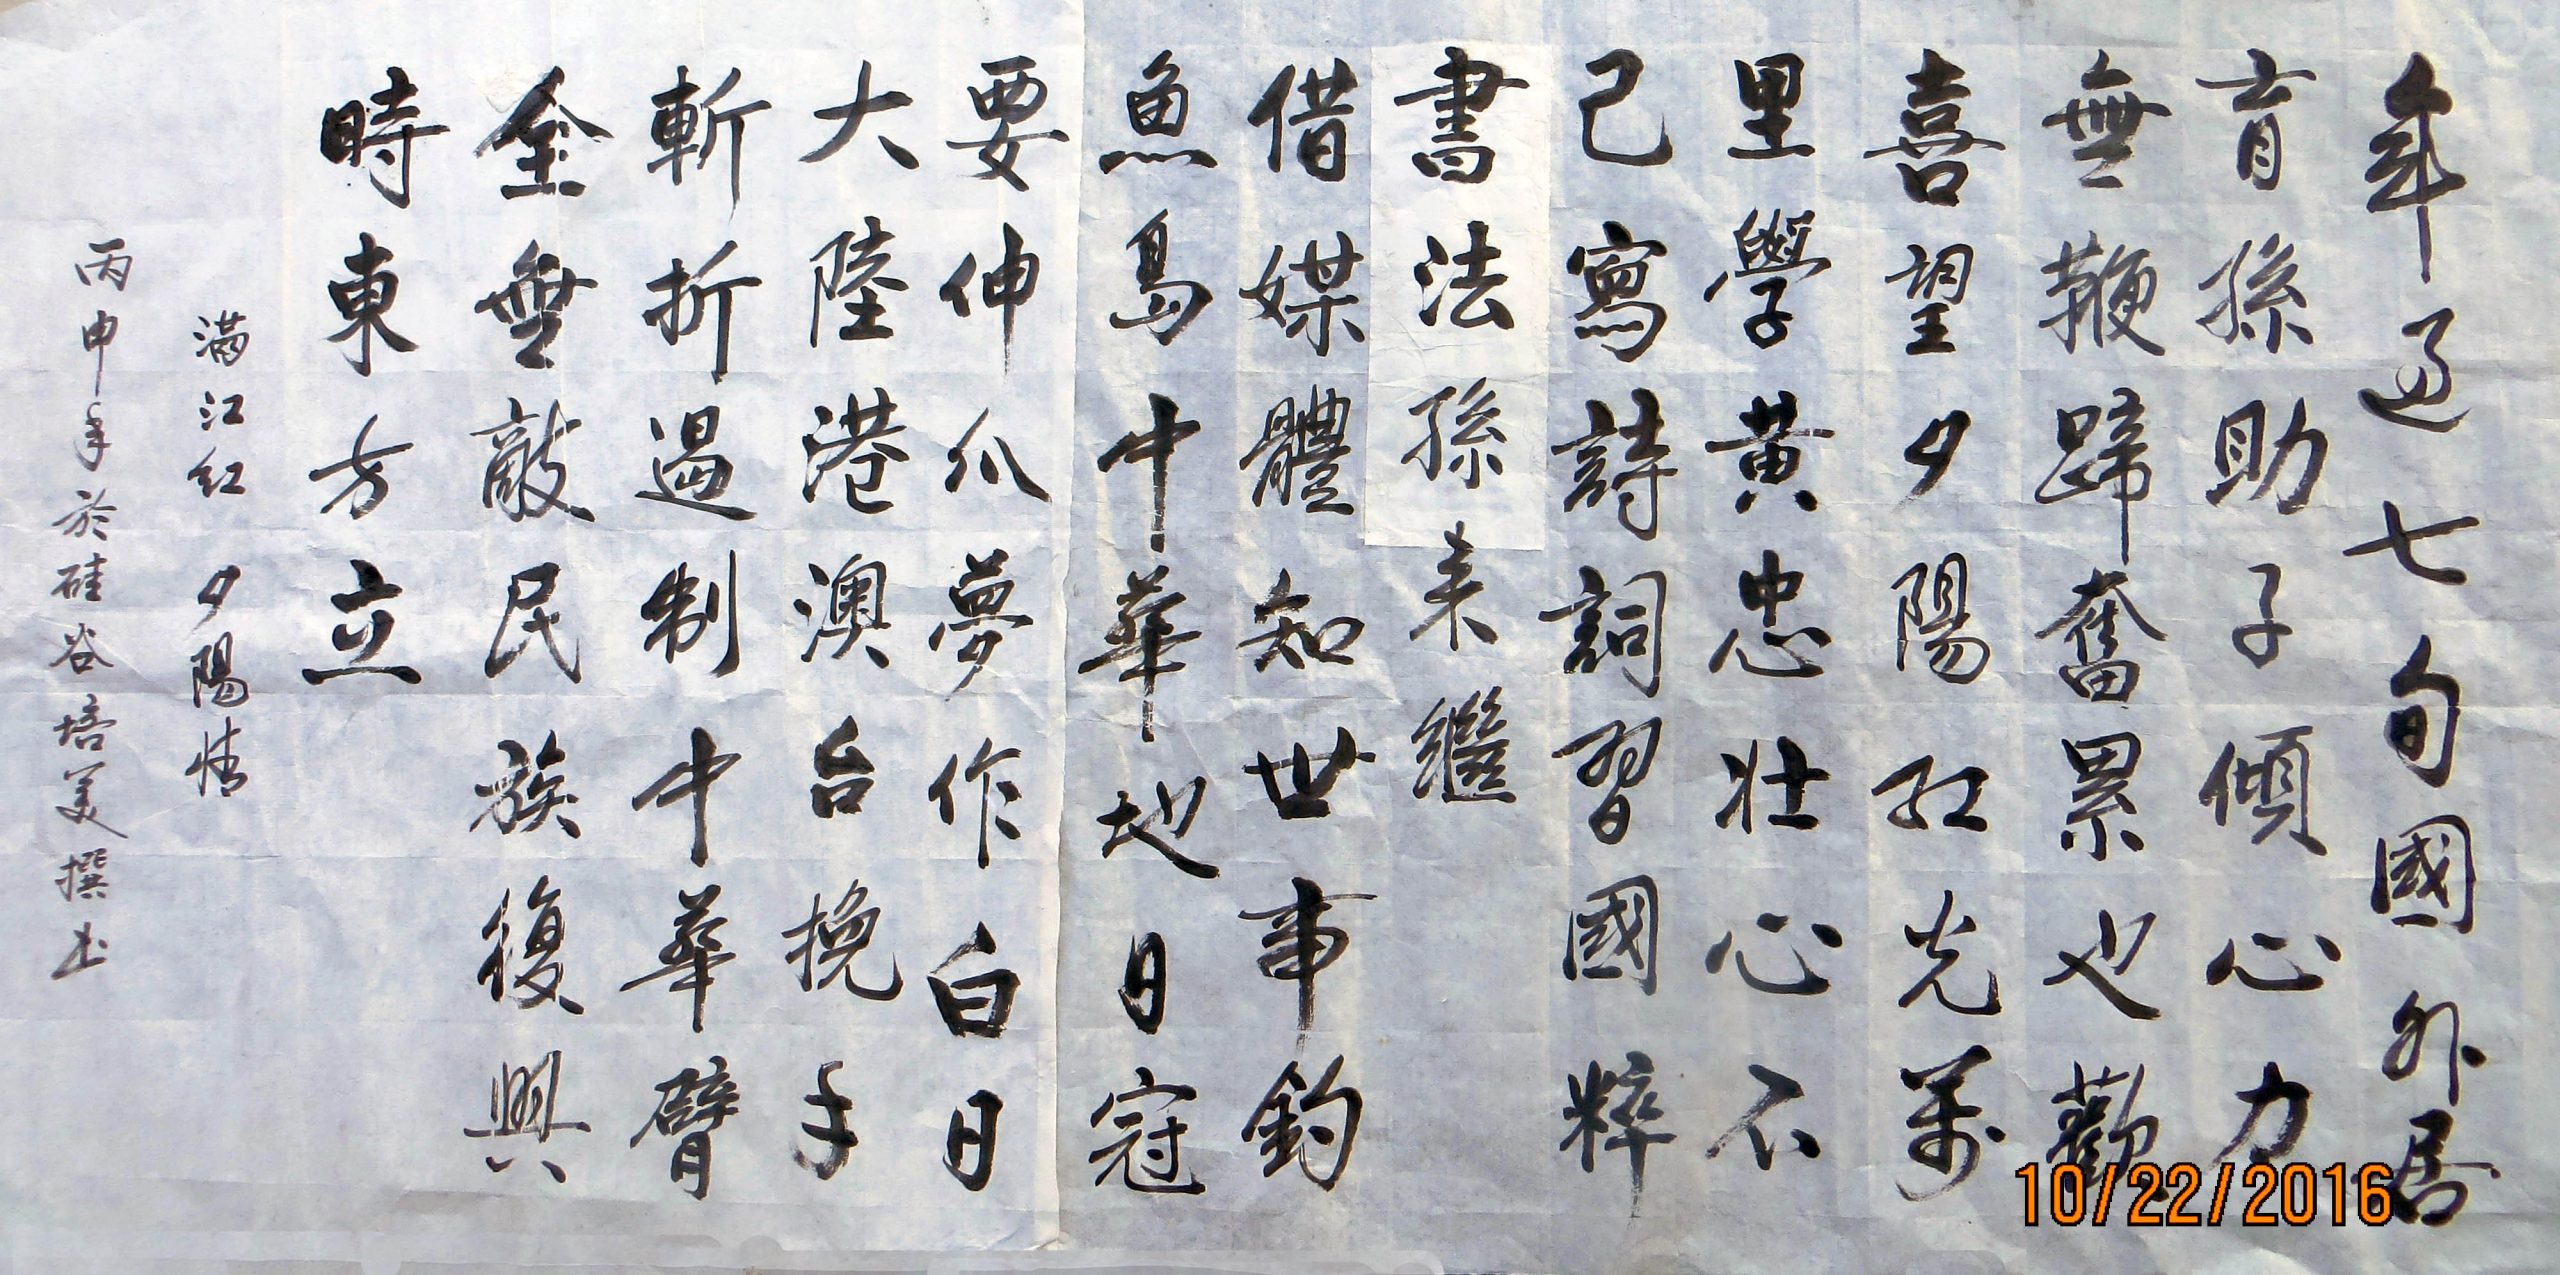 年過七旬國外居
育孫助子傾心力
無鞭蹄奮累也歡
喜詞望夕陽紅光萬
里學黃忠壯心不
已寫詩詞習國粹
書法孫來繼
借媒體知世事釣
魚島中華地日冠
要伸爪夢作白日
大陸港澳台挽手
斬折遏制中華臂
金無敵民族復興
時東方立
滿江红 夕陽情
丙申年於硅谷培美撰书
10/22/2016